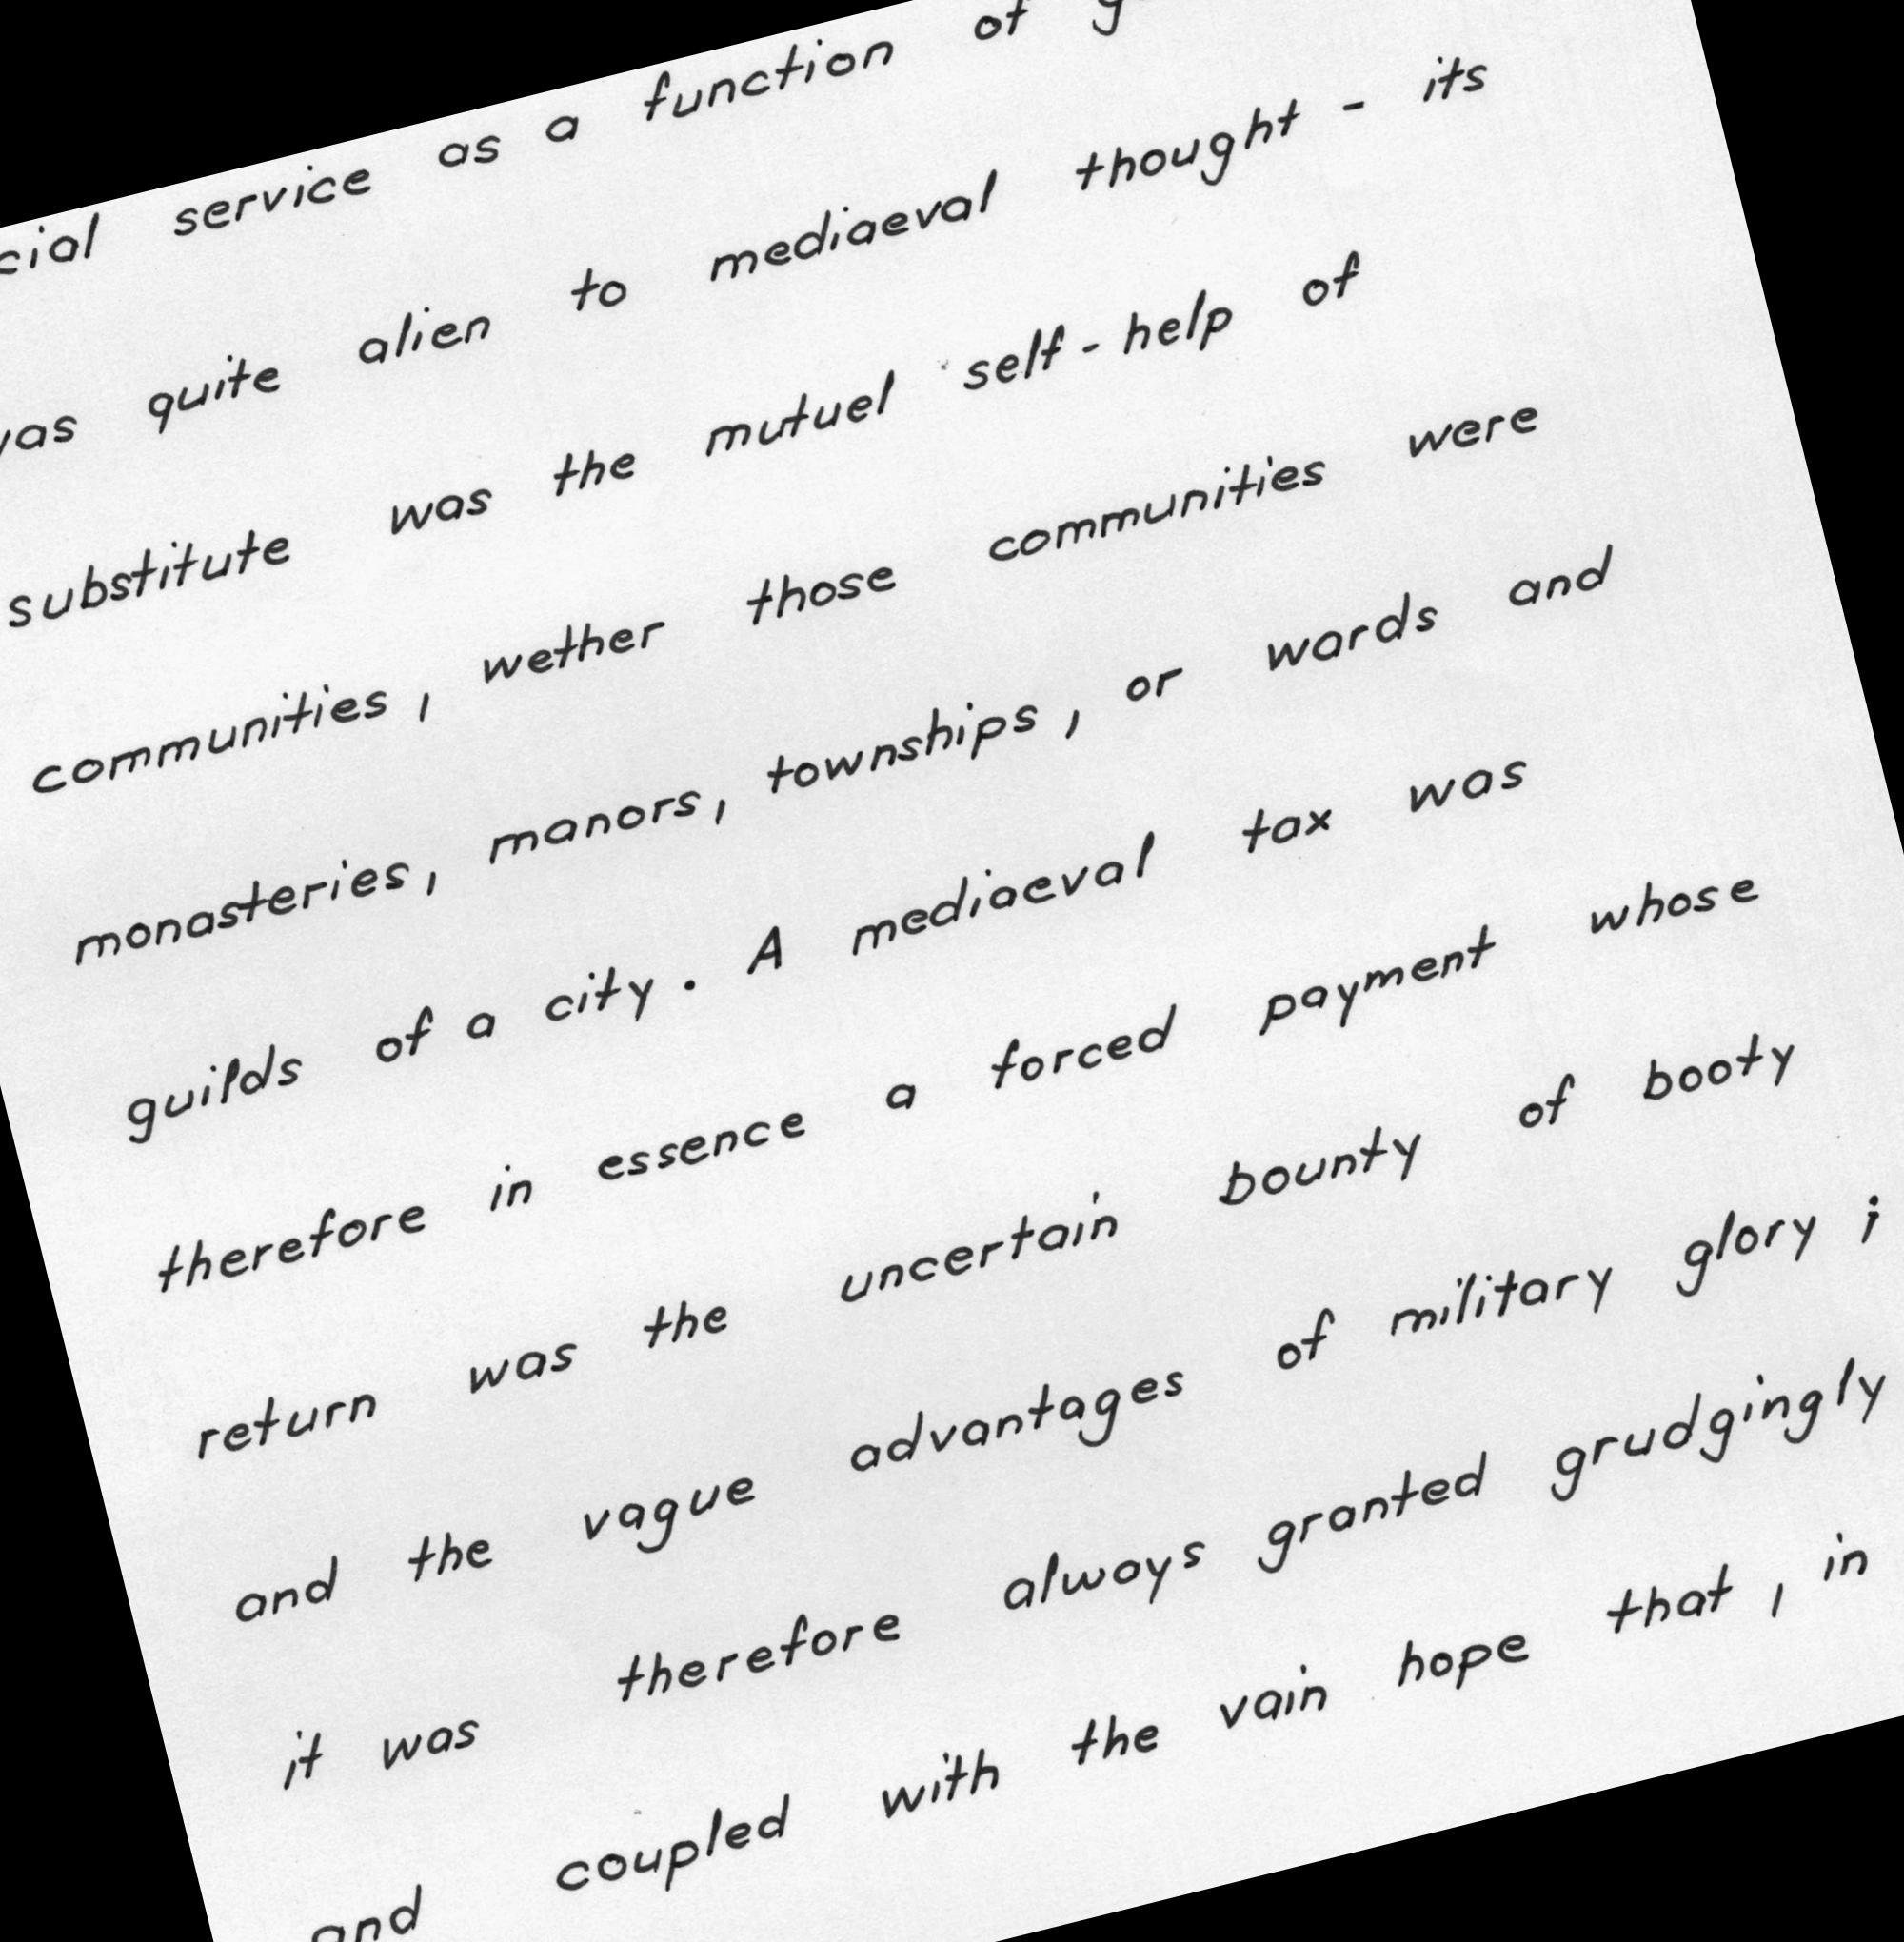 service as a function of
was quite alien to mediaeval thought - its
substitute was the mutuel self-help of
communities, wether those communities were
monasteries, manors, townships, or wards and
guilds of a city. A mediaeval tax was
therefore in essence a forced payment whose
return was the uncertain bounty of booty
and the vague advantages of military glory;
it was therefore always granted grudgingly
and coupled with the vain hope that, in